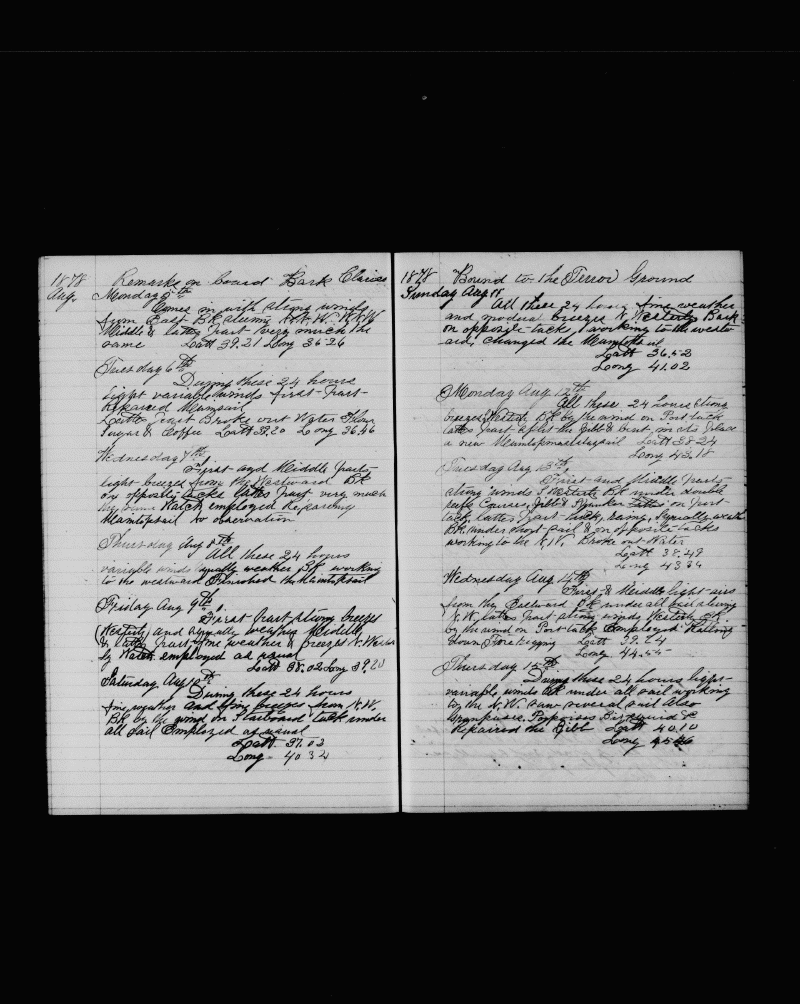 1878 Remarks on board Bark Clarice
Aug. Monday 5th
Comes in with strong winds
from East Bk N.N.W. N.W
Middle & latter part very much the
same Latt 39.21 Long 35-26
Tuesday 6th
During these 24 hours
light variable winds first part
Repaired Mainsail
Latter part Broke out Water Flour
Sugar & Coffee Latt 39.20 Long 36.46
Wednesday 7th
First and Middle parts
light breezes from the Westward Bk
on opposite tacks latter part very much
the same Watch employed Repairing
Maintopsail no observation
Thursday Aug 8th
All these 24 hours
variable winds squally weather Bk working
to the westward Finished the Maintopsail
Friday Aug 9th
First part strong breezes
Westerly and squally weather Middle
& latter part fine weather & breezes N. Westerly
Watch employed as usual
Latt 38.02 Long 39.20
Saturday Aug 10th
During these 24 hours
fine weather and fine breezes from N.W.
Bk by the wind on Starboard tack under
all sail Employed as usual
Latt 37.03
Long 40 32
1878 Bound to the Terror Ground
Sunday Aug 11
All these 24 hours fine weather
and moderate breezes N. Westerly Bark
on opposite tacks working to the westw
ard, changed the Maintopsail
Latt 36.52
Long 41.02
Monday Aug 12th
All these 24 hours strong
breezes Westerly Bk by the wind on Port tack
latter part split the Jibb & bent in its place
a new Latt 38 24
Long 43.18
Tuesday Aug 13th
First and Middle parts
strong winds S Westerly Bk under double
reefs Courses, Jibb & Spanker on Port
tack, latter part rainy, Squally weather
Bk under short sail & on opposite tacks
working to the N.W. Broke out Water
Latt 38.49
Long 43 36
Wednesday Aug 14th
First & Middle light airs
from the Eastward Bk under all sail steering
N.W. latter part strong winds Westerly Bk
by the wind on Port tack Employed Rattling
down Fore Rigging Latt 39.24
Long 44.55
Thursday 15th
During these 24 hours light
variable winds Bk under all sail working
to the N.W. saw several sail Also
Grampuses, Porpoises &c
Repaired the Jibb Latt 40.10
Long 45